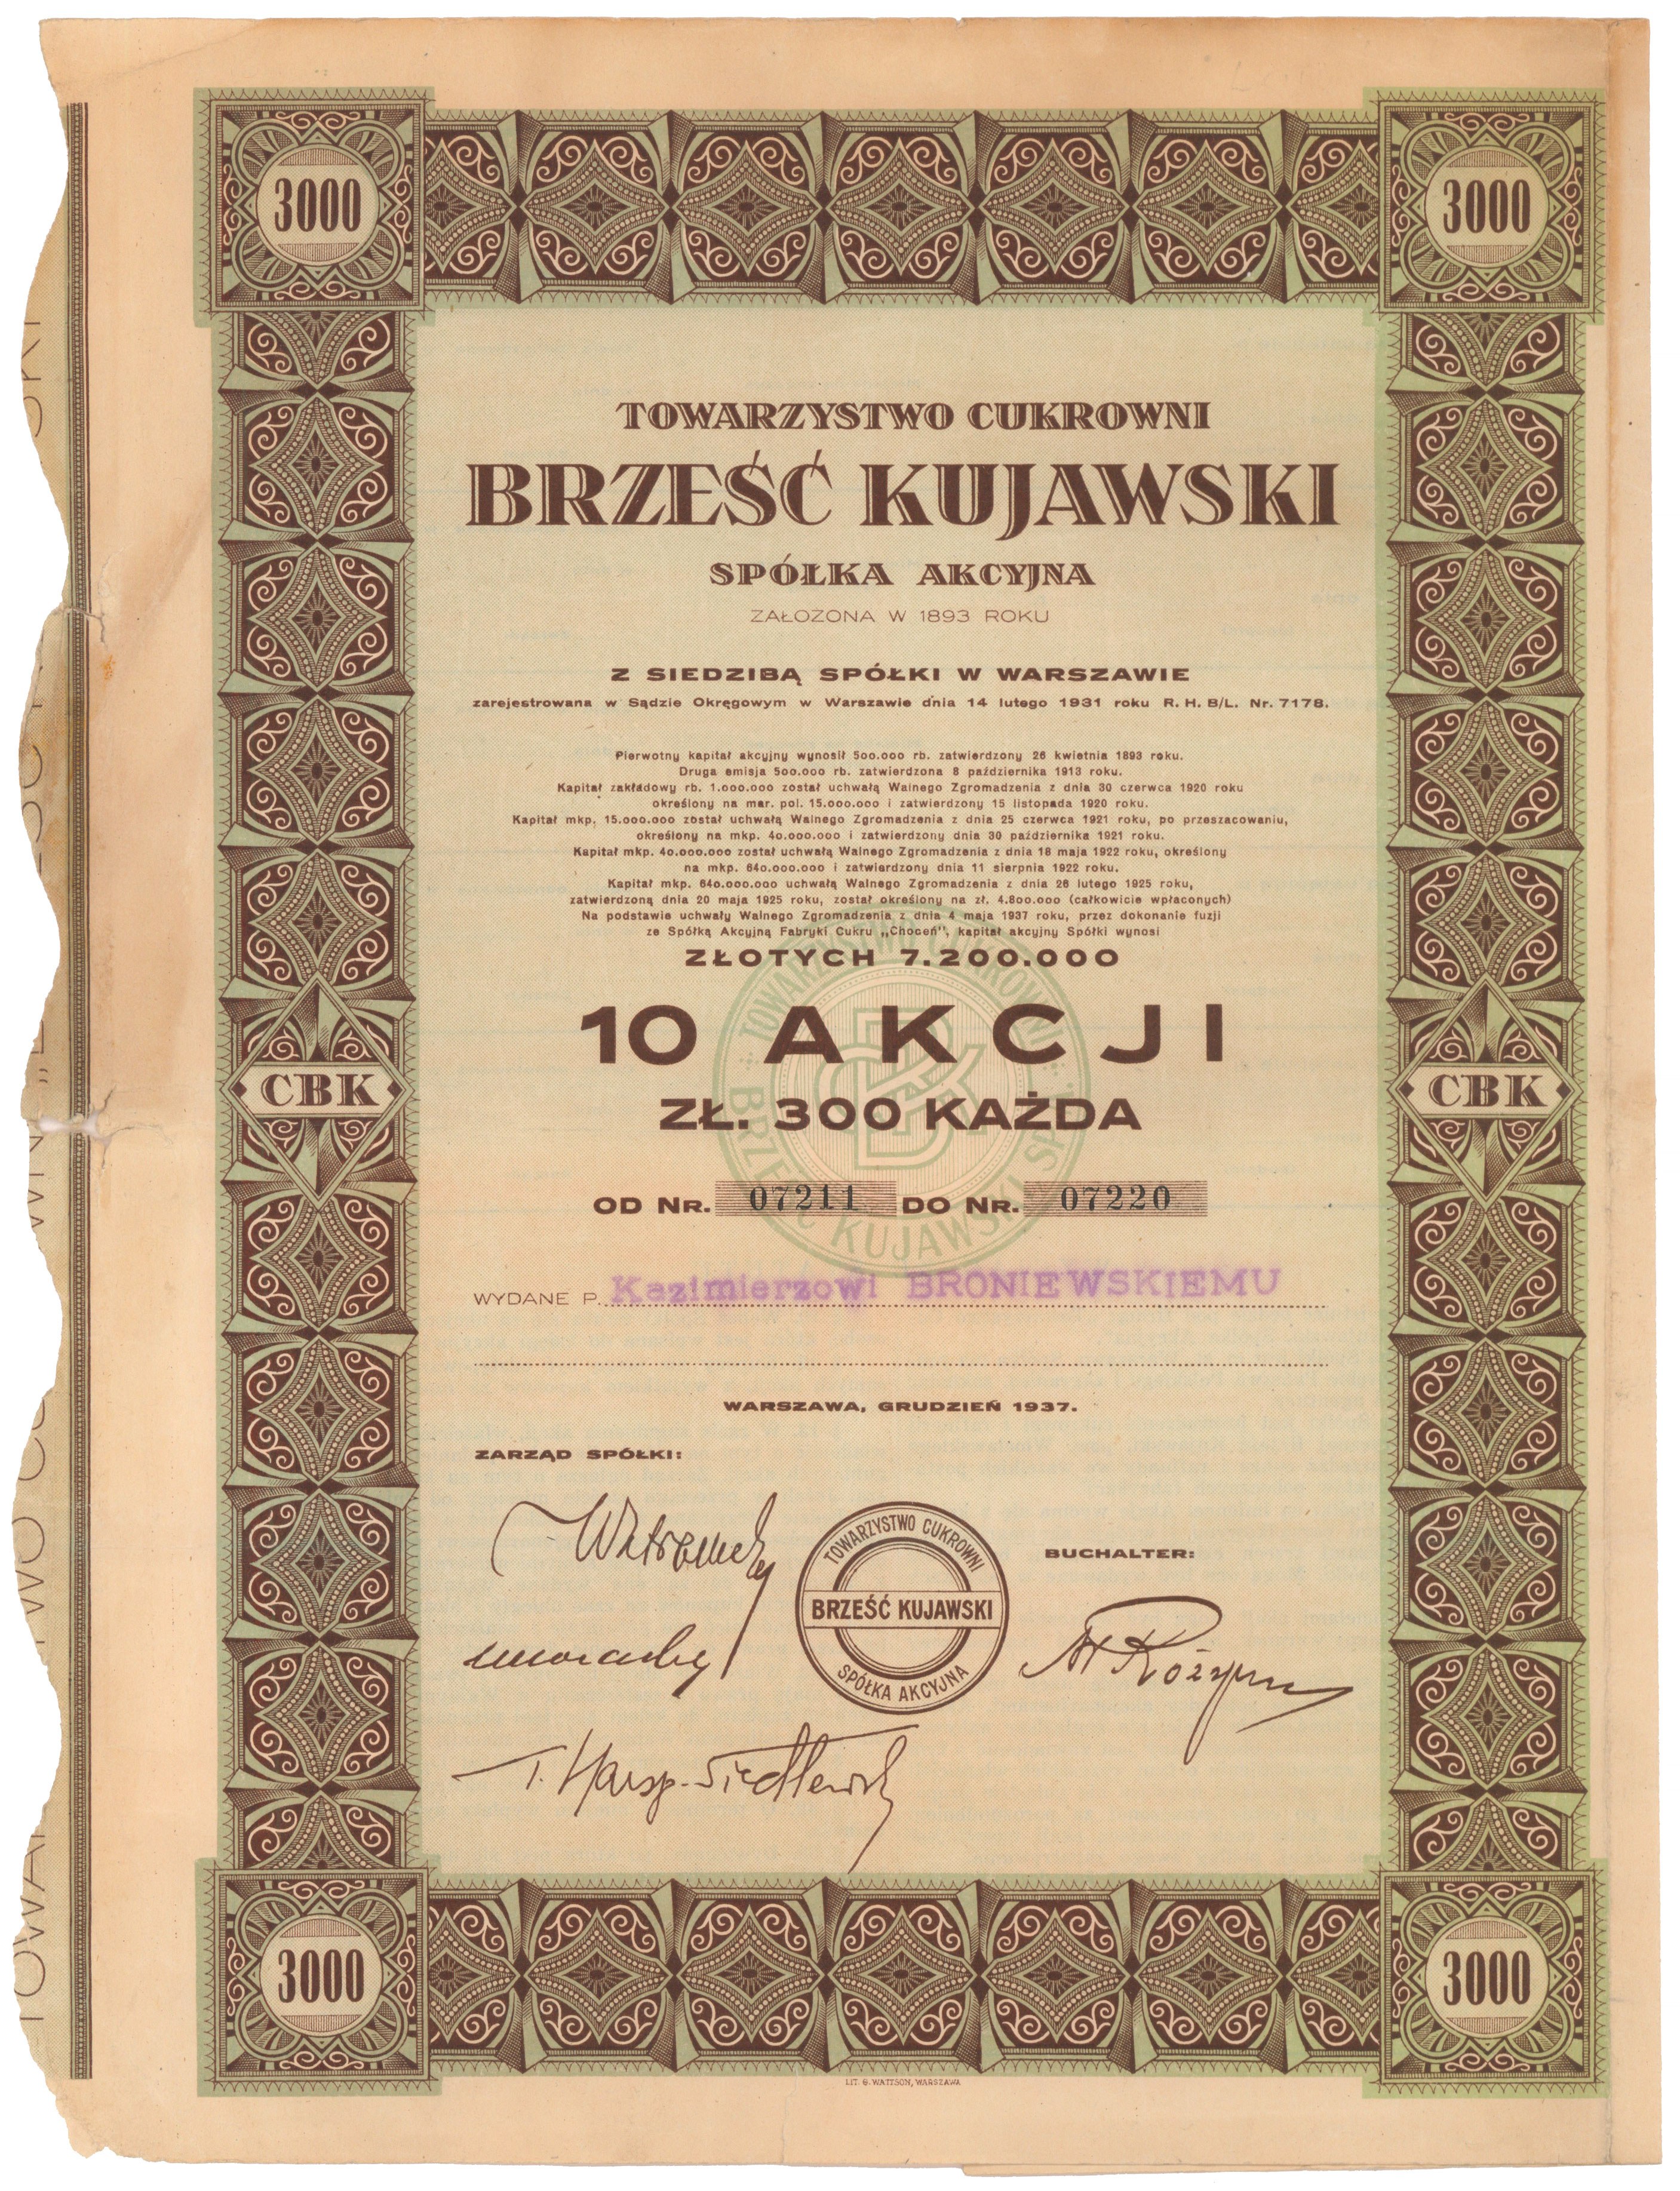 3000
3000
TOWARZYSTWO CUKROWNI
BRZEŚĆ KUJAWSKI
SPÓŁKA AKCYJNA
ZAŁOZONA W 1893 ROKU
Z SIEDZIBĄ SPÓŁKI W WARSZAWIE
zarejestrowana w Sądzie Okręgowym w Warszawie dnia 14 lutego 1931 roku R. H. B/L. Nr. 7178.
Pierwotny kapitał akcyjny wynosił 500.000 rb. zatwierdzony 26 kwietnia 1893 roku.
Druga emisja 500.000 rb. zatwierdzona 8 października 1913 roku.
Kapitał zakładowy rb. 1.000.000 został uchwałą Walnego Zgromadzenia z dnia 30 czerwca 1920 roku
określony na mar. pol. 15.000.000 i zatwierdzony 15 listopada 1920 roku.
Kapitał mkp. 15.000.000 został uchwałą Walnego Zgromadzenia z dnia 25 czerwca 1921 roku, po przeszacowaniu,
określony na mkp. 40.000.000 i zatwierdzony dnia 30 października 1921 roku.
Kapitał mkp. 40.000.000 został uchwałą Walnego Zgromadzenia z dnia 18 maja 1922 roku, określony
na mkp. 640.000.000 i zatwierdzony dnia 11 sierpnia 1922 roku.
Kapitał mkp. 640.000.000 uchwałą Walnego Zgromadzenia z dnia 26 lutego 1925 roku,
zatwierdzoną dnia 20 maja 1925 roku, został określony na zł. 4.800.000 (całkowicie wpłaconych)
Na podstawie uchwały Walnego Zgromadzenia z dnia 4 maja 1937 roku, przez dokonanie fuzji
ze Spółką Akcyjną Fabryki Cukru „Choceń", kapitał akcyjny Spółki wynosi
ZŁOTYCH 7.200.000
TOWARZYSTWO CUKROWNI
BRZEŚĆ KUJAWSKI SP.
10 AKCJI
CBK
CBK
ZŁ. 300 KAŻDA
OD NR. 07211 DO NR. 07220
WYDANE P. Kazimierzowi BRONIEWSKIEMU
WARSZAWA, GRUDZIEŃ 1937.
ZARZĄD SPÓŁKI:
TOWARZYSTWO CUKROWNI
BRZEŚĆ KUJAWSKI
SPÓŁKA AKCYJNA
BUCHALTER:
3000
3000
LIT. B. WATTSON, WARSZAWA